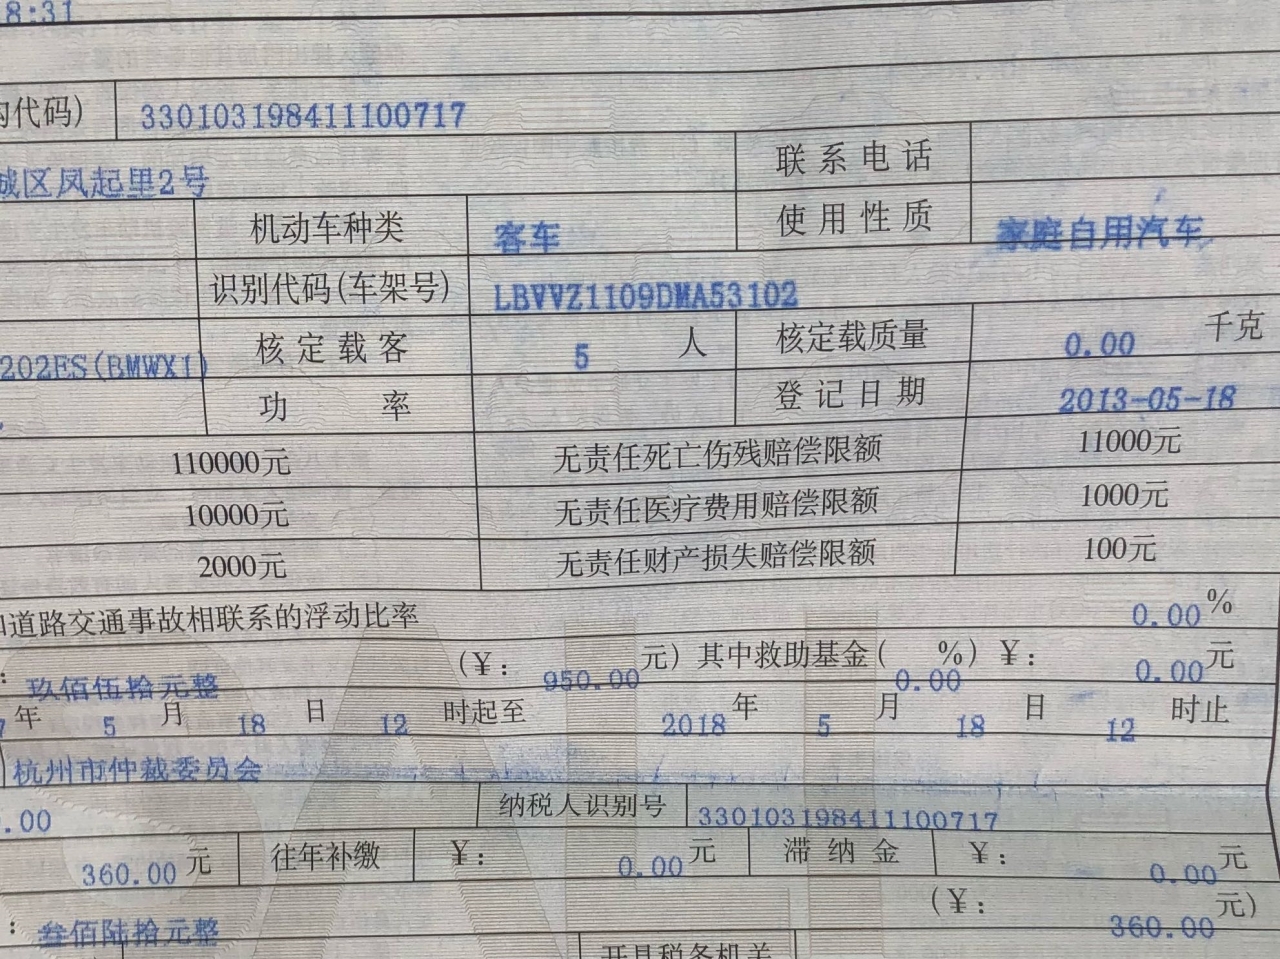 8:31
构代码) 330103198411100717
城区凤起里2号 联系电话
机动车种类 客车 使用性质 家庭自用汽车
识别代码(车架号) LBVVZ1109DMA53102
202ES(BMWX1) 核定载客 5 人 核定载质量 0.00 千克
功率 登记日期 2013-05-18
110000元 无责任死亡伤残赔偿限额 11000元
10000元 无责任医疗费用赔偿限额 1000元
2000元 无责任财产损失赔偿限额 100元
道路交通事故相联系的浮动比率 0.00 %
: 玖佰伍拾元整 (¥: 950.00 元) 其中救助基金( 0.00 %) ¥: 0.00 元
年 5 月 18 日 12 时起至 2018 年 5 月 18 日 12 时止
杭州市仲裁委员会
.00 纳税人识别号 330103198411100717
360.00 元 往年补缴 ¥: 0.00 元 滞纳金 ¥: 0.00 元
: 叁佰陆拾元整 (¥: 360.00 元)
开具税务机关